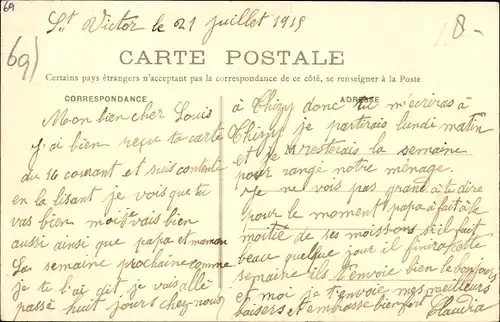 69
69)
St Victor le 21 juillet 1915
8-
CARTE POSTALE
Certains pays étrangers n'acceptent pas la correspondance de ce côté, se renseigner à la Poste
CORRESPONDANCE
Mon bien cher Louis
J'ai bien reçu ta carte
du 16 courant et suis contente
en la lisant je vois que tu
vas bien moi je vais bien
aussi ainsi que papa et maman
La semaine prochaine comme
je te l'ai dit je vais allé
passé huit jours chez-nous
ADRESSE
à Thizy donc tu m'écriras à
Thizy je partirais lundi matin
et je resterais la semaine
pour rangé notre ménage.
Je ne vois pas grand à te dire
pour le moment papa à fait à la
moitié de ses moissons s'il fait
beau quelque jour il finira cette
semaine ils t'envoie bien le bonjour
et moi je t'envoie mes meilleurs
baisers et t'embrasse bien fort Claudia